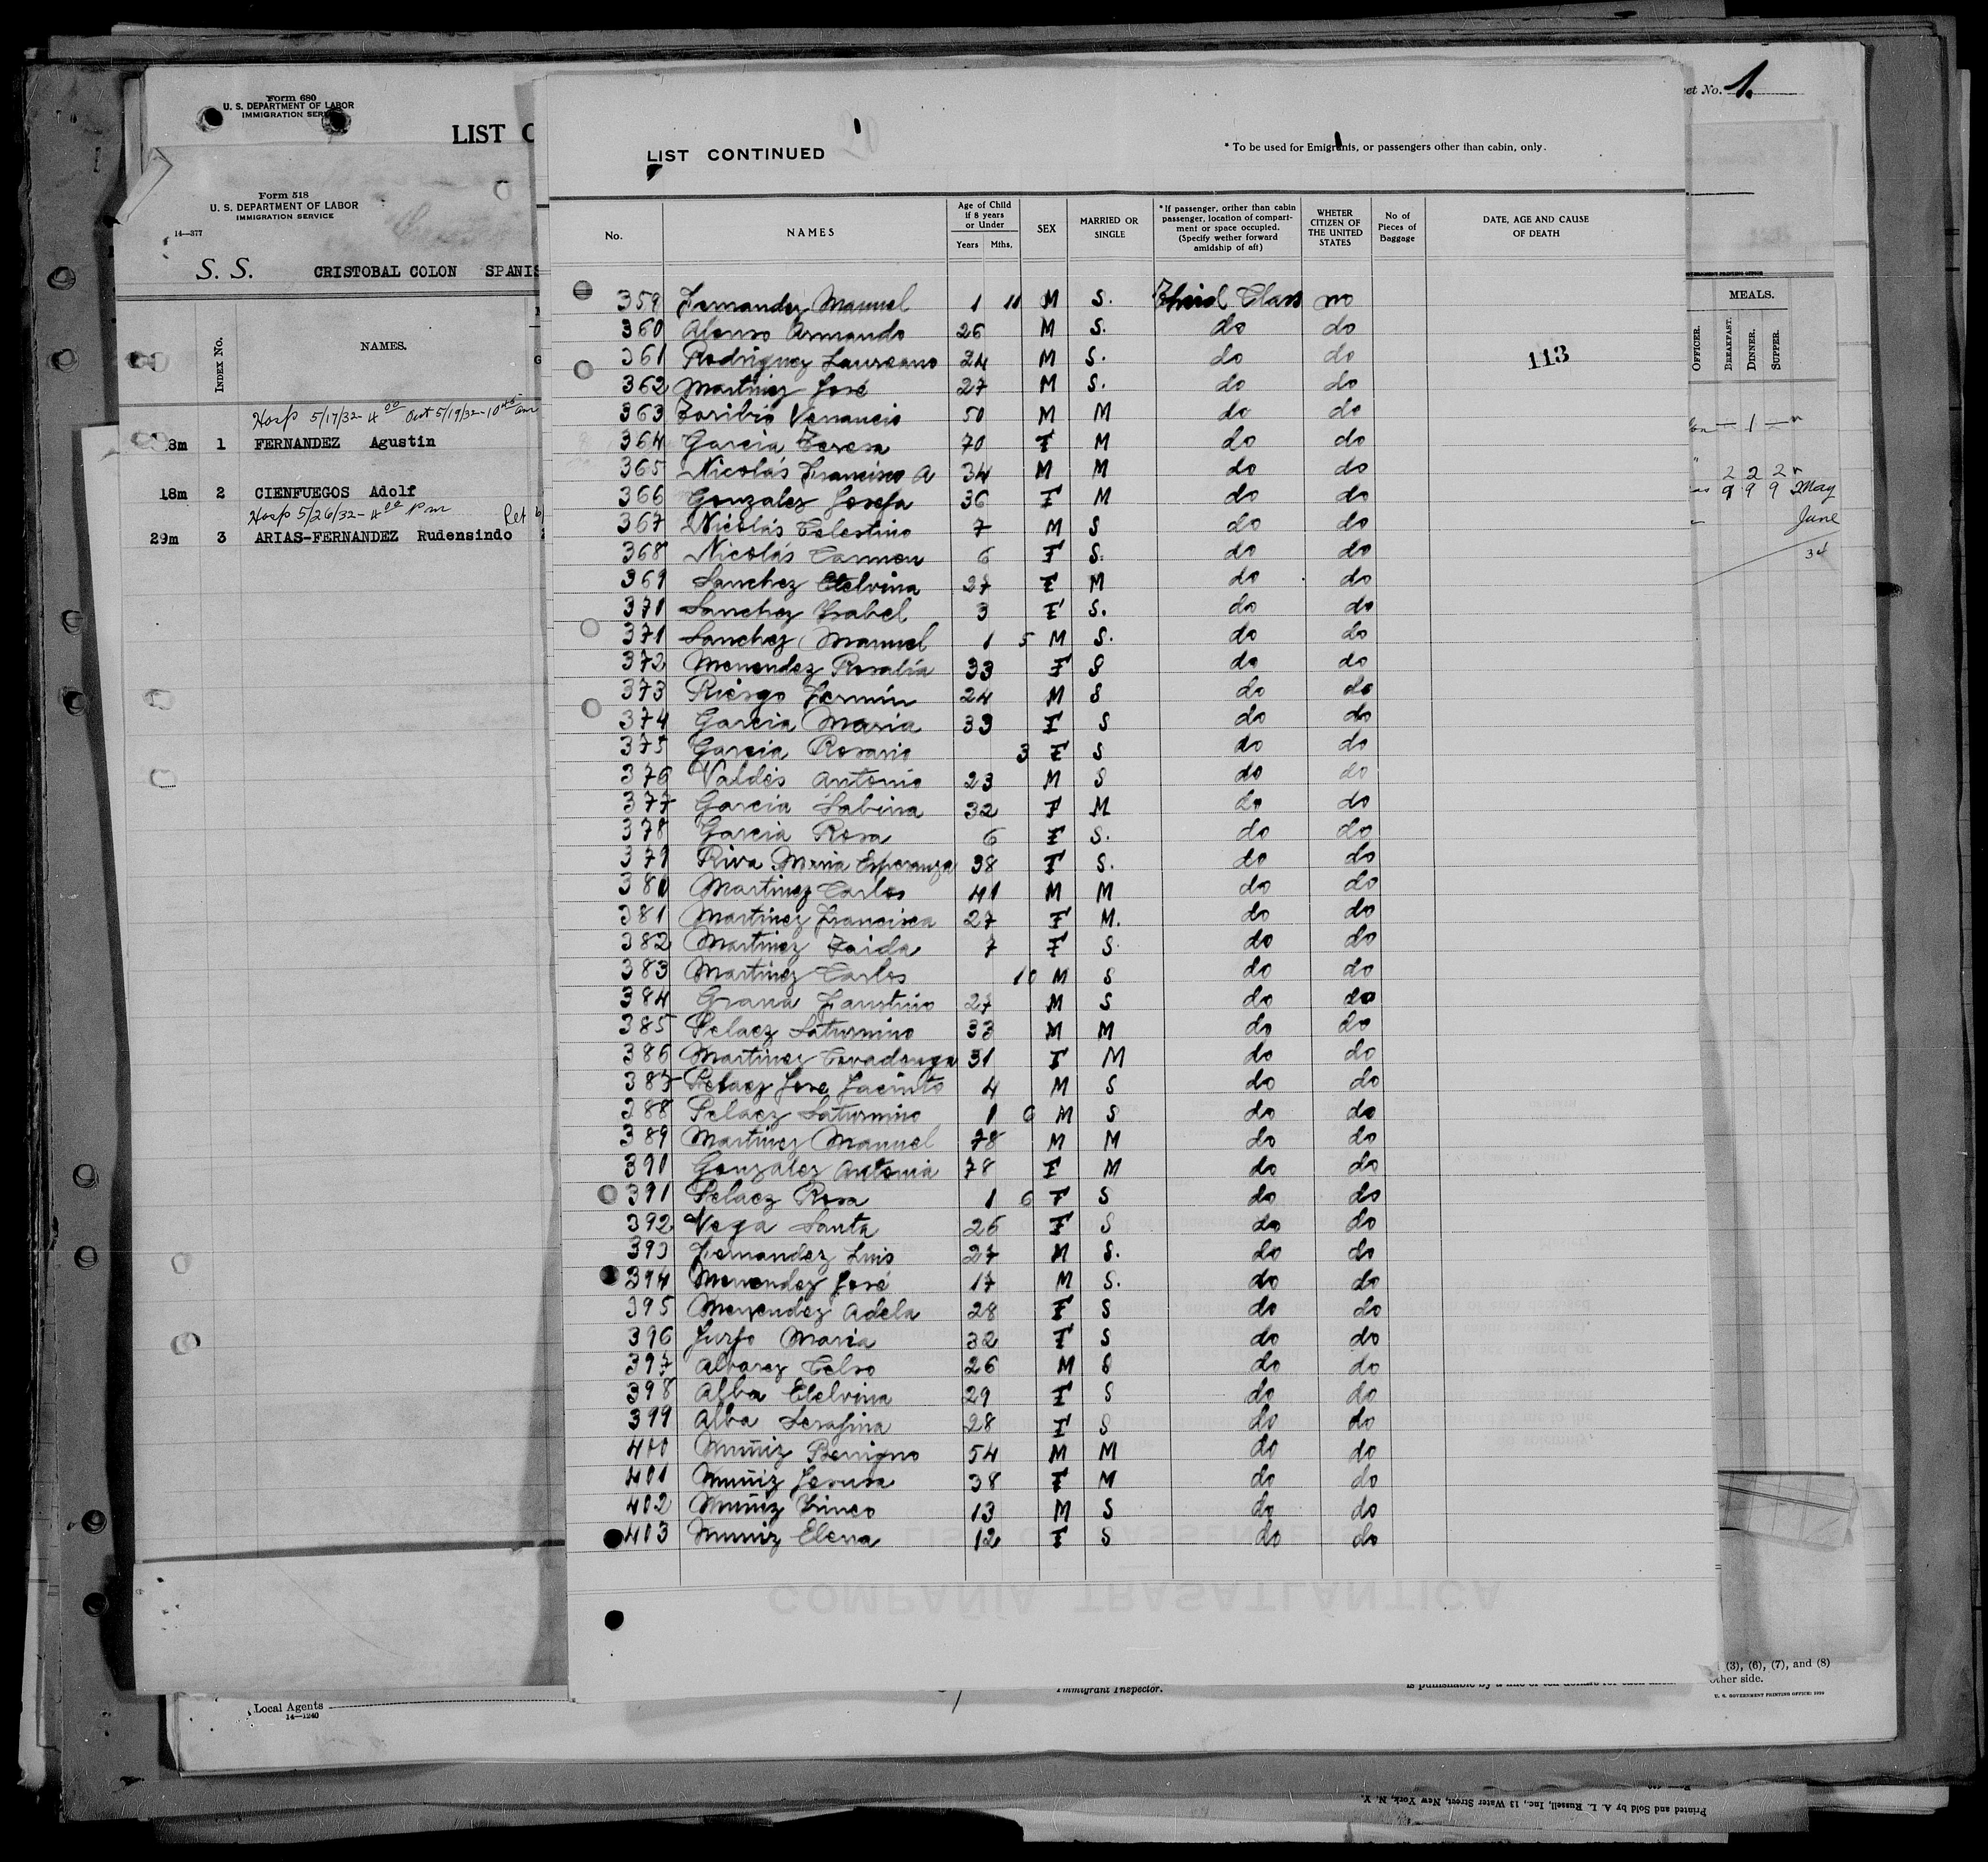 Form 680
U. S. DEPARTMENT OF LABOR
IMMIGRATION SERVICE
LIST
Form 518
U. S. DEPARTMENT OF LABOR
IMMIGRATION SERVICE
14—377
S. S. CRISTOBAL COLON SPANIS
INDEX No. NAMES.
Hosp 5/17/32- 4 00 Out 5/19/32- 10 45 am
1 FERNANDEZ Agustin
18m 2 CIENFUEGOS Adolf
Hosp 5/26/32- 4 00 Pm
29m 3 ARIAS-FERNANDEZ Rudensindo
Local Agents
14—1240
LIST CONTINUED
* To be used for Emigrants, or passengers other than cabin, only.
No. NAMES Age of Child if 8 years or Under Years Mths, SEX MARRIED OR SINGLE * If passenger, orther than cabin passenger, location of compartment or space occupied. (Specify wether forward amidship of aft) WHETER CITIZEN OF THE UNITED STATES No of Pieces of Baggage DATE, AGE AND CAUSE OF DEATH
359 Fernandez Manuel 1 11 M S. Third Class no
360 Alonso Armando 26 M S. do do
361 Rodriguez Laureano 24 M S. do do 113
362 Martinez José 27 M S. do do
363 Toribio Venancio 50 M M do do
364 Garcia Teresa 70 F M do do
365 Nicolás Francisco A 34 M M do do
366 Gonzalez Josefa 36 F M do do
367 Nicolás Celestino 7 M S do do
368 Nicolás Carmen 6 F S. do do
369 Sanchez Etelvina 27 F M do do
370 Sanchez Ysabel 3 F S. do do
371 Sanchez Manuel 1 5 M S. do do
372 Menendez Rosalía 33 F S do do
373 Riesgo Fermín 24 M S do do
374 Garcia Maria 33 F S do do
375 Garcia Rosario 3 F S do do
376 Valdés Antonio 23 M S do do
377 Garcia Sabina 32 F M do do
378 Garcia Rosa 6 F S. do do
379 Riva Maria Esperanza 38 F S. do do
380 Martinez Carlos 41 M M do do
381 Martinez Francisca 27 F M. do do
382 Martinez Zaida 7 F S. do do
383 Martinez Carlos 10 M S do do
384 Grana Faustino 27 M S do do
385 Pelaez Saturnino 33 M M do do
386 Martinez Covadonga 31 F M do do
387 Pelaez Jose Jacinto 4 M S do do
388 Pelaez Saturnino 1 6 M S do do
389 Martinez Manuel 78 M M do do
390 Gonzalez Antonia 78 F M do do
391 Pelaez Rosa 1 6 F S do do
392 Vega Santa 26 F S do do
393 Fernandez Luis 27 M S. do do
394 Menendez José 17 M S. do do
395 Menendez Adela 28 F S do do
396 Maria 32 F S do do
397 Alvarez Celso 26 M S do do
398 Alba Etelvina 29 F S do do
399 Alba Serafina 28 F S do do
400 Muñiz Benigno 54 M M do do
401 Muñiz Jesusa 38 F M do do
402 Muñiz 13 M S do do
403 Muniz Elena 12 F S do do
COMPAÑÍA TRASATLANTICA
Immigrant Inspector.
No. 1.
MEALS.
OFFICER. BREAKFAST. DINNER. SUPPER.
1
2 2 2
9 9 9 May
June
(3), (6), (7), and (8)
other side.
U. S. GOVERNMENT PRINTING OFFICE:
Printed and Sold by A. L. Russell, Inc., 13 Water Street, New York, N. Y.